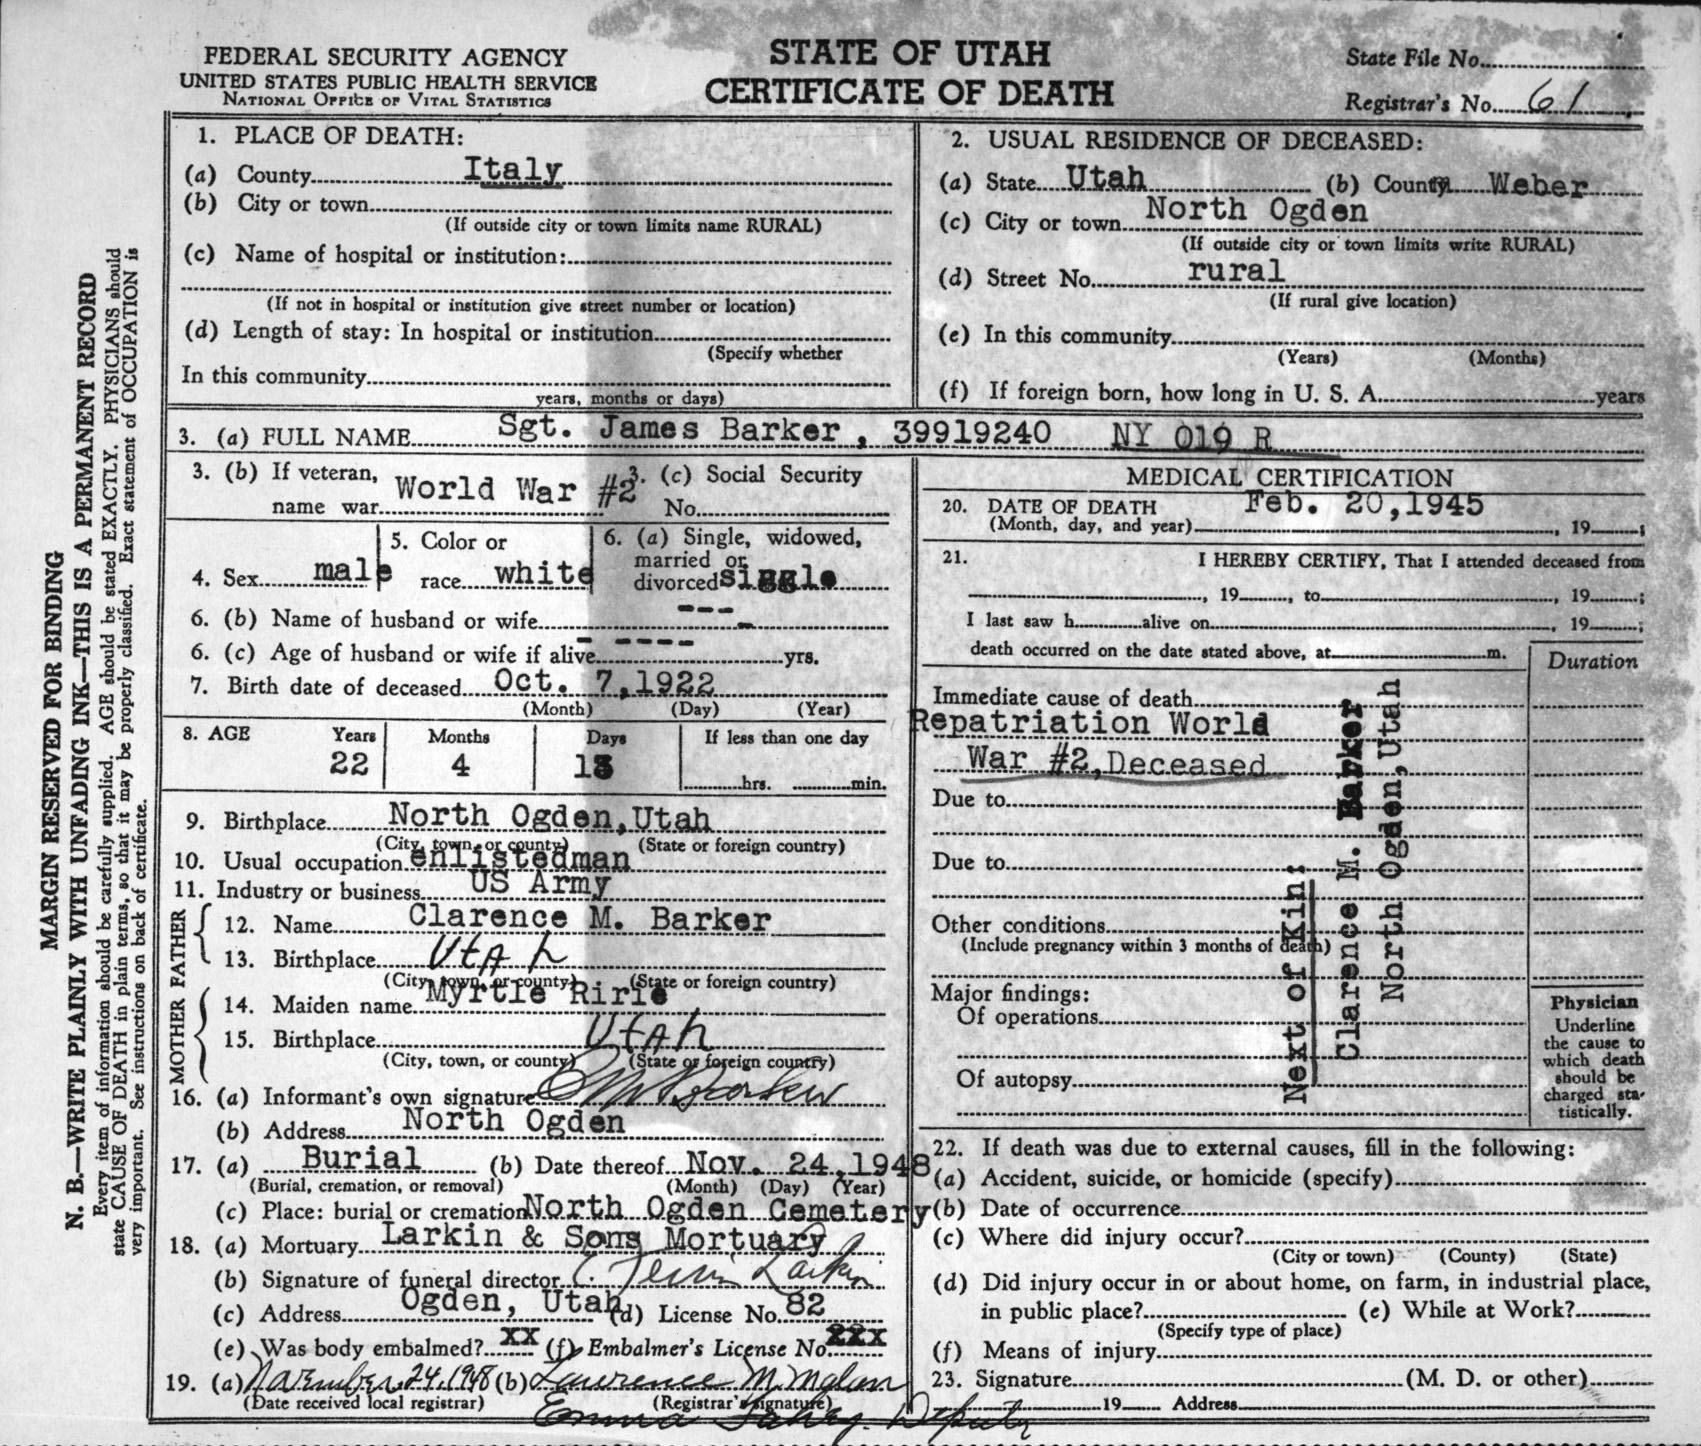 FEDERAL SECURITY AGENCY
UNITED STATES PUBLIC HEALTH SERVICE
NATIONAL OFFICE OF VITAL STATISTICS
STATE OF UTAH
CERTIFICATE OF DEATH
State File No.
Registrar's No. 61
MARGIN RESERVED FOR BINDING
N. B.—WRITE PLAINLY WITH UNFADING INK—THIS IS A PERMANENT RECORD
Every item of information should be carefully supplied. AGE should be stated EXACTLY. PHYSICIANS should
state CAUSE OF DEATH in plain terms, so that it may be properly classified. Exact statement of OCCUPATION is
very important. See instructions on back of certificate.
1. PLACE OF DEATH:
(a) County Italy
(b) City or town
(If outside city or town limits name RURAL)
(c) Name of hospital or institution:
(If not in hospital or institution give street number or location)
(d) Length of stay: In hospital or institution
(Specify whether
In this community
years, months or days)
2. USUAL RESIDENCE OF DECEASED:
(a) State Utah (b) County Weber
(c) City or town North Ogden
(If outside city or town limits write RURAL)
(d) Street No. rural
(If rural give location)
(e) In this community
(Years) (Months)
(f) If foreign born, how long in U. S. A. years
3. (a) FULL NAME Sgt. James Barker, 39919240 NY 019 R
3. (b) If veteran, name war World War #2
3. (c) Social Security No.
4. Sex male
5. Color or race white
6. (a) Single, widowed, married or divorced single
6. (b) Name of husband or wife ---
6. (c) Age of husband or wife if alive - ---- yrs.
7. Birth date of deceased Oct. 7,1922
(Month) (Day) (Year)
8. AGE Years Months Days If less than one day
22 4 13 hrs. min.
9. Birthplace North Ogden,Utah
(City, town, or county) (State or foreign country)
10. Usual occupation enlistedman
11. Industry or business US Army
FATHER
12. Name Clarence M. Barker
13. Birthplace Utah
(City, town, or county) (State or foreign country)
MOTHER
14. Maiden name Myrtle Ririe
15. Birthplace Utah
(City, town, or county) (State or foreign country)
16. (a) Informant's own signature C M Barker
(b) Address North Ogden
17. (a) Burial (b) Date thereof Nov. 24,1948
(Burial, cremation, or removal) (Month) (Day) (Year)
(c) Place: burial or cremation North Ogden Cemetery
18. (a) Mortuary Larkin & Sons Mortuary
(b) Signature of funeral director Larkin
(c) Address Ogden, Utah (d) License No. 82
(e) Was body embalmed? xx (f) Embalmer's License No. xxx
19. (a) November 24, 1948 (b) Lawrence M.
(Date received local registrar) (Registrar's signature)
Emma Deputy
MEDICAL CERTIFICATION
20. DATE OF DEATH Feb. 20,1945
(Month, day, and year) , 19 ;
21. I HEREBY CERTIFY, That I attended deceased from
, 19 , to , 19 ;
I last saw h alive on , 19 ;
death occurred on the date stated above, at m.
Duration
Immediate cause of death
Repatriation World
War #2,Deceased
Due to
Due to
Other conditions
(Include pregnancy within 3 months of death)
Major findings:
Of operations
Of autopsy
Next of Kin:
Clarence M. Barker
North Ogden,Utah
Physician
Underline
the cause to
which death
should be
charged sta-
tistically.
22. If death was due to external causes, fill in the following:
(a) Accident, suicide, or homicide (specify)
(b) Date of occurrence
(c) Where did injury occur?
(City or town) (County) (State)
(d) Did injury occur in or about home, on farm, in industrial place,
in public place? (e) While at Work?
(Specify type of place)
(f) Means of injury
23. Signature (M. D. or other)
19 Address